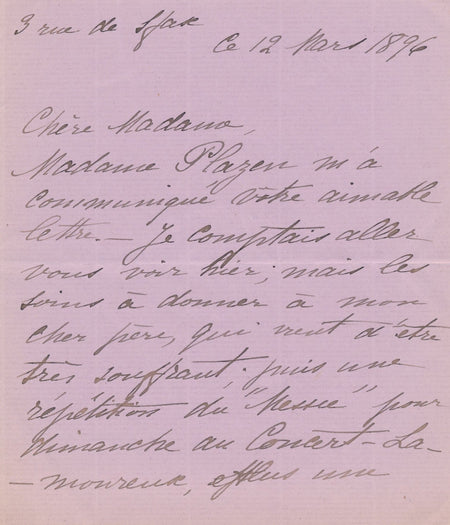 3 rue de Sfax
ce 12 Mars 1896
Chère Madame,
Madame Plazen m'a
communiqué votre aimable
lettre. — Je comptais aller
vous voir hier; mais les
soins à donner à mon
cher père, qui vient d'être
très souffrant; puis une
répétition du "Messie" pour
dimanche au Concert-La-
-moureux, et plus une